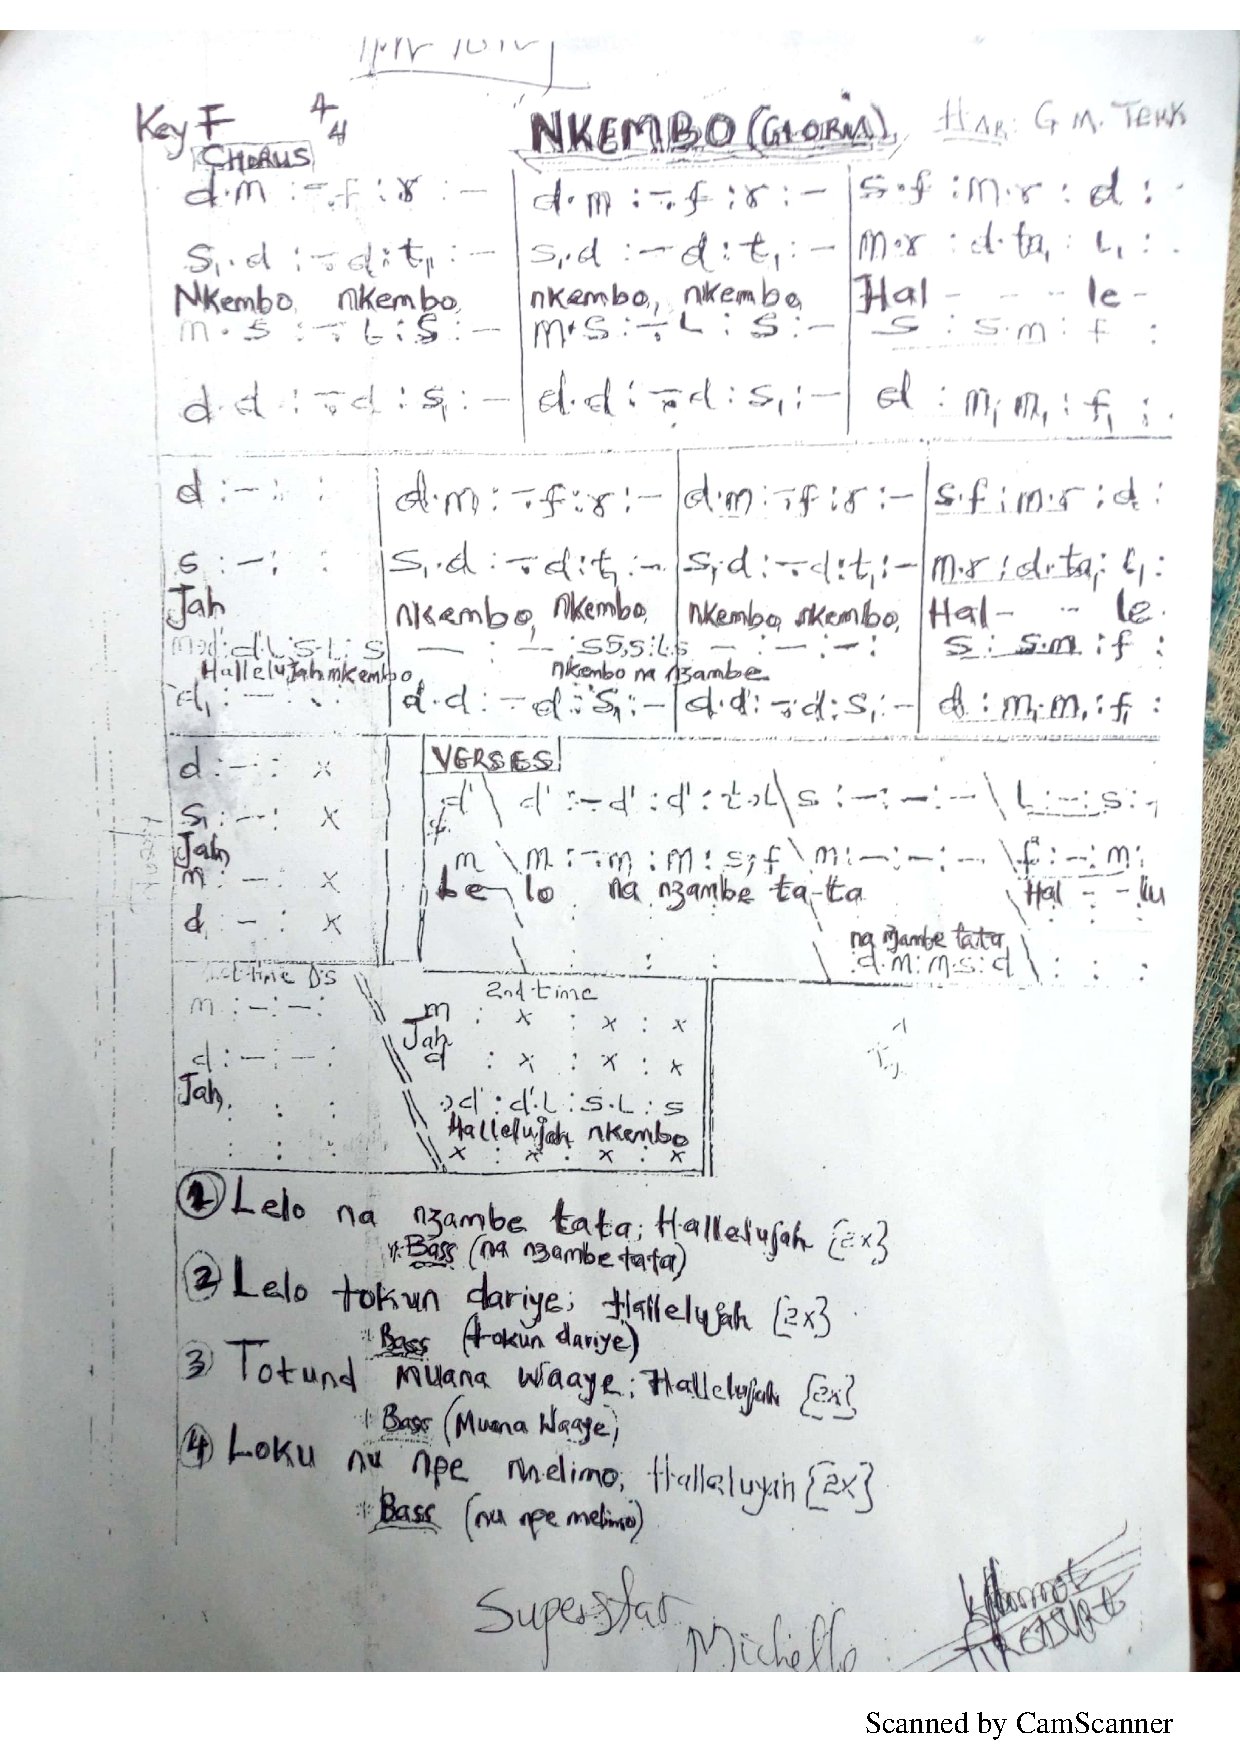 Key F 4/4 NKEMBO (GLORIA) HAR: G M. TEKK
CHORUS
d.m : -.f : r : - | d.m : -.f : r : - | s.f : m.r : d :
s₁.d : -.d : t₁ : - | s₁.d : - d : t₁ : - | m.r : d.ta₁ : l₁ :
Nkembo, nkembo, nkembo, nkembo Hal - - - le -
m.s : -.L : s : - | m.s : -.L : s : - | s : s.m : f :
d.d : -.d : s₁ : - | d.d : -.d : s₁ : - | d : m₁.m₁ : f₁ :
d : - : : | d.m : -.f : r : - | d.m : -.f : r : - | s.f : m.r : d :
s : - : : | s₁.d : -.d : t₁ : - | s₁.d : -.d : t₁ : - | m.r : d.ta₁ : l₁ :
Jah nkembo, nkembo, nkembo, nkembo, Hal - - - le.
d' : d'.L : s.L : s | - : - : s s,s : L.s | - : - : - : | s : s.m : f :
Hallelujah nkembo nkembo na nzambe
d₁ : - : : | d.d : - d : s₁ : - | d.d : -.d : s₁ : - | d : m₁.m₁ : f₁ :
d : - : x VERSES
d' \ d' : - d' : d' : t.L \ s : - : - : - \ L : - : s : -
s₁ : - : x
Jah
m \ m : -.m : m : s,f \ m : - : - : - \ f : - : m :
m : - : x
Le - lo na nzambe ta-ta Hal - - lu
d : - : x
na nzambe tata
: d.m : m.s : d \ : : :
time D's 2nd time
m : - : - : m : x : x : x
Jah
d : - : - : d : x : x : x
Jah, .,d' : d'.L : s.L : s
Hallelujah nkembo
x : x : x : x
1 Lelo na nzambe tata; Hallelujah {2x}
* Bass (na nzambe tata)
2 Lelo tokun dariye; Hallelujah {2x}
* Bass (tokun dariye)
3 Totund muana waaye; Hallelujah {2x}
* Bass (Muana Waaye)
4 Loku nu npe melimo; Halleluyah {2x}
* Bass (nu npe melimo)
Superstar
Michelle
Scanned by CamScanner